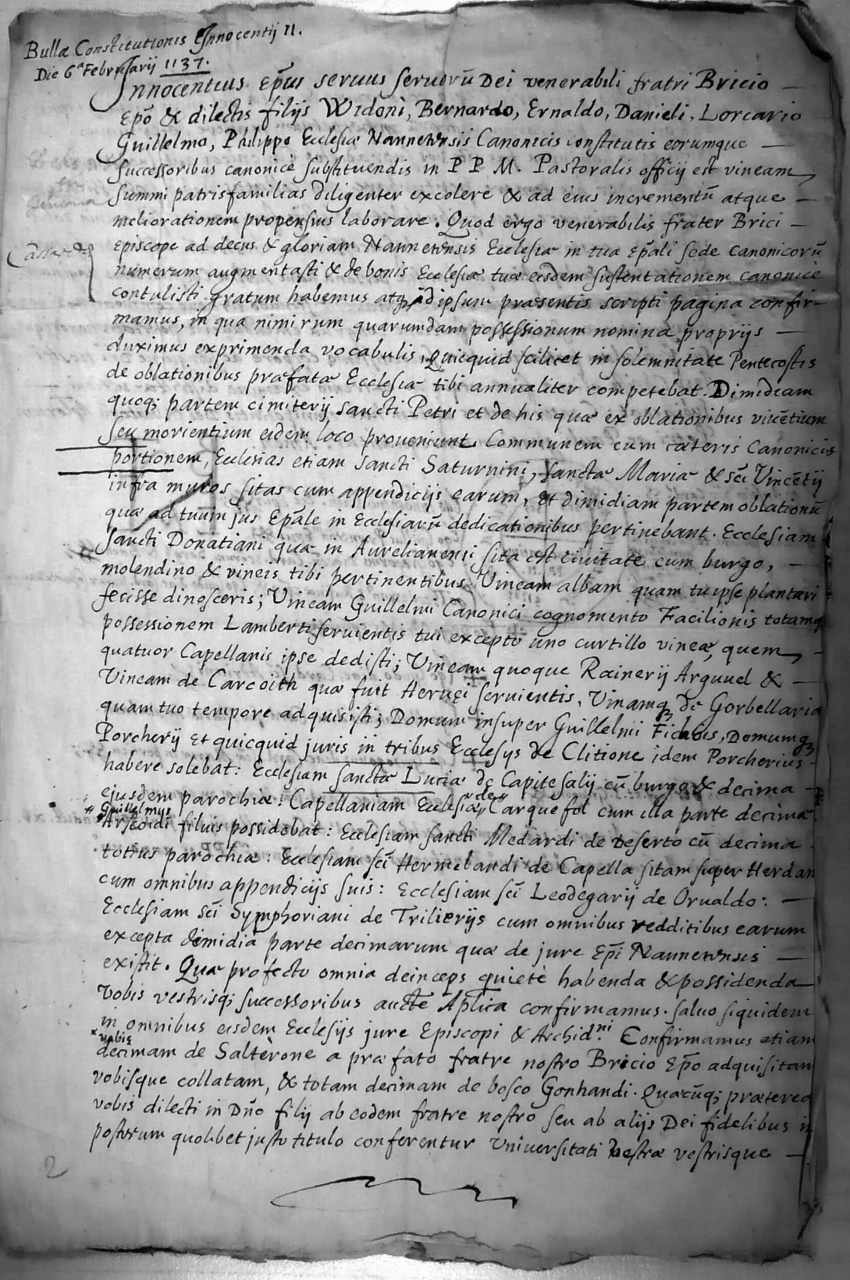 Bulla Constitutionis Innocentij II.
Die 6ª Februarij 1137.
Innocentius Ep̃us servus servorũ Dei venerabili fratri Bricio —
Ep̃o & dilectis filijs Widoni, Bernardo, Ernaldo, Danieli, Lorcario
Guillelmo, Philippo Ecclesiæ Nannetensis Canonicis constitutis eorumque —
successoribus canonicè substituendis in P P M. Pastoralis officij est vineam
summi patrisfamilias diligenter excolere & ad eius incrementũ atque —
meliorationem propensius laborare. Quod ergo venerabilis frater Brici —
Episcope ad decus & gloriam Nannetensis Ecclesiæ in tua Ep̃ali sede canonicorũ
numerum augmentasti & de bonis Ecclesiæ tuæ eisdem sustentationem canonicè
contulisti gratum habemus atq; idipsum præsentis scripti pagina confir-
mamus, in qua nimirum quarumdam possessionum nomina proprijs —
duximus exprimenda vocabulis, Quicquid scilicet in solemnitate Pentecostis
de oblationibus præfatæ Ecclesiæ tibi annualiter competebat. Dimidiam
quoq; partem cimiterij sancti Petri et de his quæ ex oblationibus viventium
seu morientium eidem loco proveniunt Communem cum cæteris Canonicis
portionem, Ecclesias etiam sancti Saturnini, sanctæ Mariæ & scĩ Vincetij
infra muros sitas cum appendicijs earum, et dimidiam partem oblationũ
quæ ad tuum jus Ep̃ale in Ecclesiarũ dedicationibus pertinebant. Ecclesiam
sancti Donatiani quæ in Aurelianensi sita est civitate cum burgo, —
molendino & vineis tibi pertinentibus. Vineam albam quam tu ipse plantari
fecisse dinosceris; Vineam Guillelmi Canonici cognomento Facilionis totamq
possessionem Lamberti servientis tui excepto uno curtillo vineæ, quem
quatuor Capellanis ipse dedisti; Vineam quoque Rainerij Arguuel & —
Vineam de Carcoith quæ fuit Hervei servientis, Vinamq; de Gorbellaria
quam tuo tempore adquisisti; Domum insuper Guillelmi Domumq;
Porcherij et quicquid juris in tribus Ecclesijs de Clitione idem Porcherius
habere solebat: Ecclesiam sanctæ Luciæ de Capitesalij cũ burgo & decima —
ejusdem parochiæ: Capellaniam Ecclesiæ de Carquefol cum illa parte decimæ
# Guillelmus
Arsedidi filius possidebat: Ecclesiam sancti Medardi de Deserto cũ decima
totius parochiæ: Ecclesiam scĩ Hermelandi de Capella sitam super Herdam
cum omnibus appendicijs suis: Ecclesiam scĩ Leodegarij de Orvaldo: —
Ecclesiam scĩ Symphoriani de Trilierijs cum omnibus redditibus earum
excepta dimidia parte decimarum quæ de jure Ep̃i Nannetensis —
existit. Quæ profecto omnia deinceps quietè habenda & possidenda
vobis vestrisq; successoribus aucte Ap̃lica confirmamus. salvo siquidem
in omnibus eisdem Ecclesijs jure Episcopi & Archid.ni Confirmamus etiam
x vobis
decimam de Salterone a præfato fratre nostro Bricio Ep̃o adquisitam
vobisque collatam, & totam decimam de bosco Gonhandi. Quæcũq; præterea
vobis dilecti in Dño filij ab eodem fratre nostro seu ab alijs Dei fidelibus in
posterum quolibet justo titulo conferentur Universitati vestræ vestrisque —
2